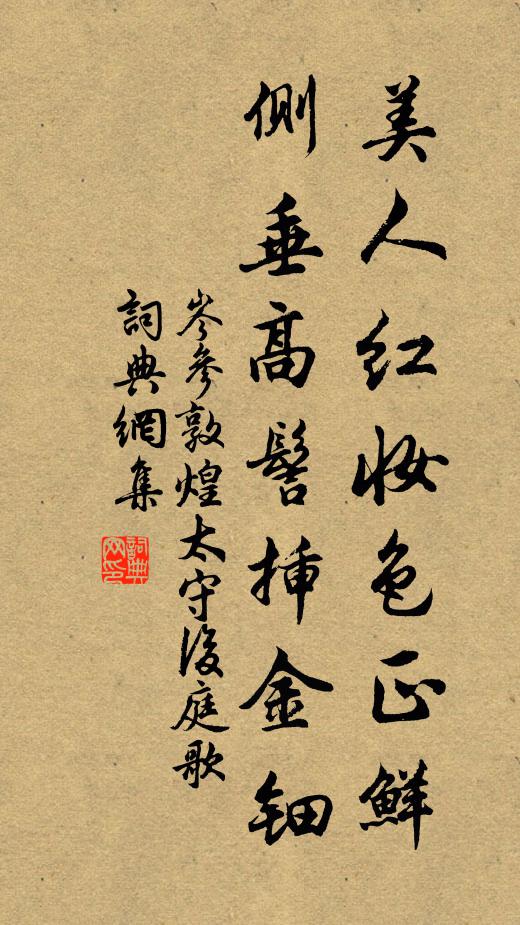 美人红妆色正鲜
侧垂高髻插金钿
岑參敦煌太守後庭歌
詞典網集
詞典网印